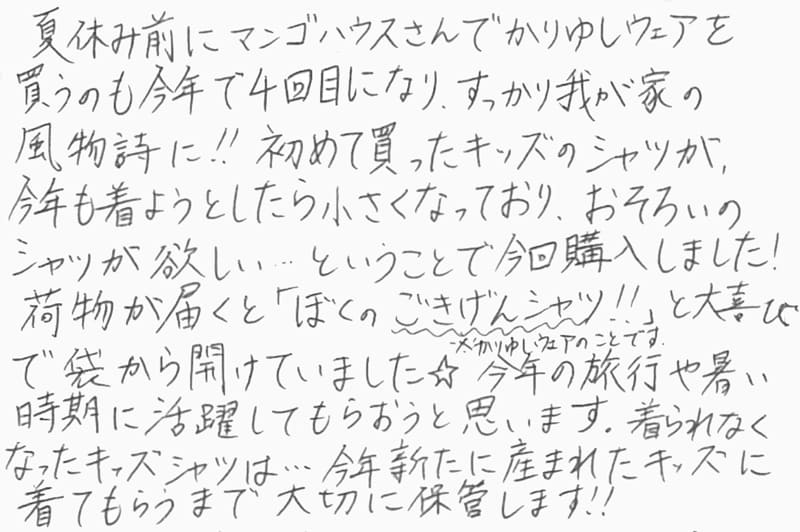 夏休み前にマンゴハウスさんでかりゆしウェアを
買うのも今年で4回目になり、すっかり我が家の
風物詩に!! 初めて買ったキッズのシャツが、
今年も着ようとしたら小さくなっており、おそろいの
シャツが欲しい…ということで今回購入しました!
荷物が届くと「ぼくのごきげんシャツ!!」と大喜び
※かりゆしウェアのことです.
で袋から開けていました☆ 今年の旅行や暑い
時期に活躍してもらおうと思います。着られなく
なったキッズシャツは…今年新たに産まれたキッズに
着てもらうまで大切に保管します!!